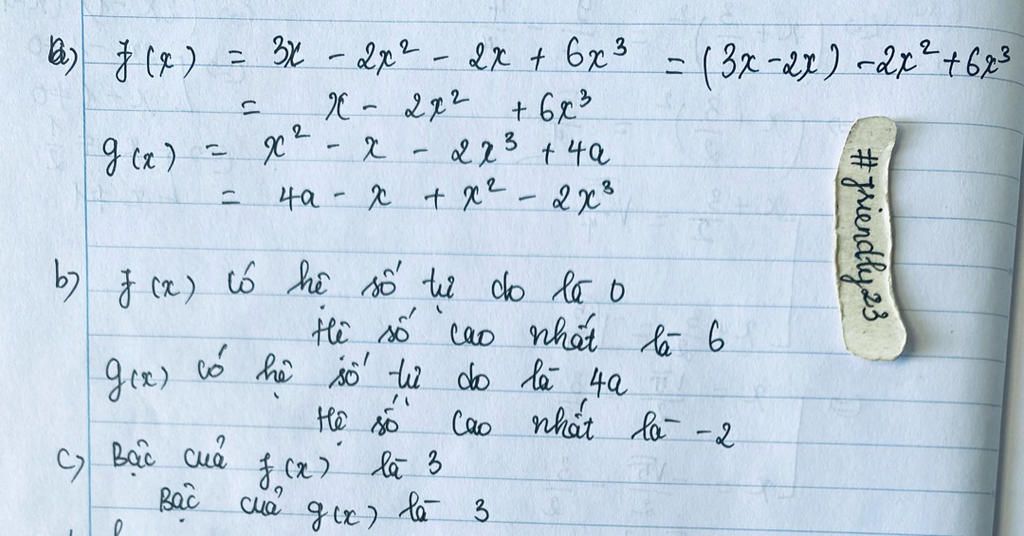 a) f(x) = 3x - 2x² - 2x + 6x³ = (3x - 2x) - 2x² + 6x³
= x - 2x² + 6x³
g(x) = x² - x - 2x³ + 4a
= 4a - x + x² - 2x³
b) f(x) có hệ số tự do là 0
Hệ số cao nhất là 6
g(x) có hệ số tự do là 4a
Hệ số cao nhất là -2
c) Bậc của f(x) là 3
Bậc của g(x) là 3
#friendly23